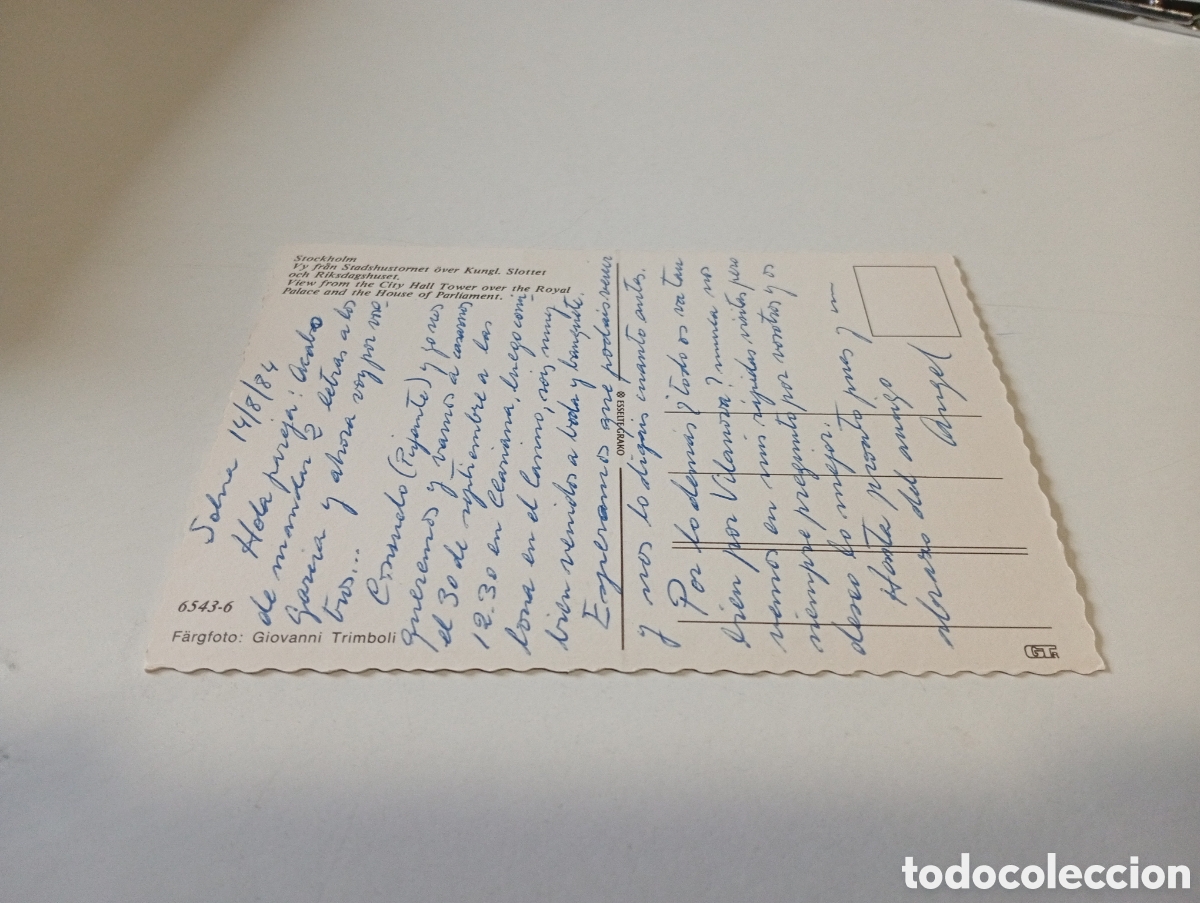 Stockholm
Vy från Stadshustornet över Kungl. Slottet
och Riksdagshuset.
View from the City Hall Tower over the Royal
Palace and the House of Parliament.
Solna 14/8/84
Hola pareja: Acabo
de mandar 2 letras a los
Garcia y ahora voy por vo-
tros...
Consuelo (Pujante) y yo nos
queremos y vamos a casarnos
el 30 de septiembre a las
12.30 en
bona en el camino, sois muy
bien venidos a boda y banquete.
Esperamos que podais venir
y nos lo digais cuanto antes.
Por lo demás ¿todo os va tan
bien por Vilanova? nunca nos
vemos en mis rápidas visitas pero
siempre pregunto por vosotros y os
deseo lo mejor.
Hasta pronto pues y un
abrazo del amigo
Angel
6543-6
Färgfoto: Giovanni Trimboli
ESSELTE GRAKO
todocoleccion